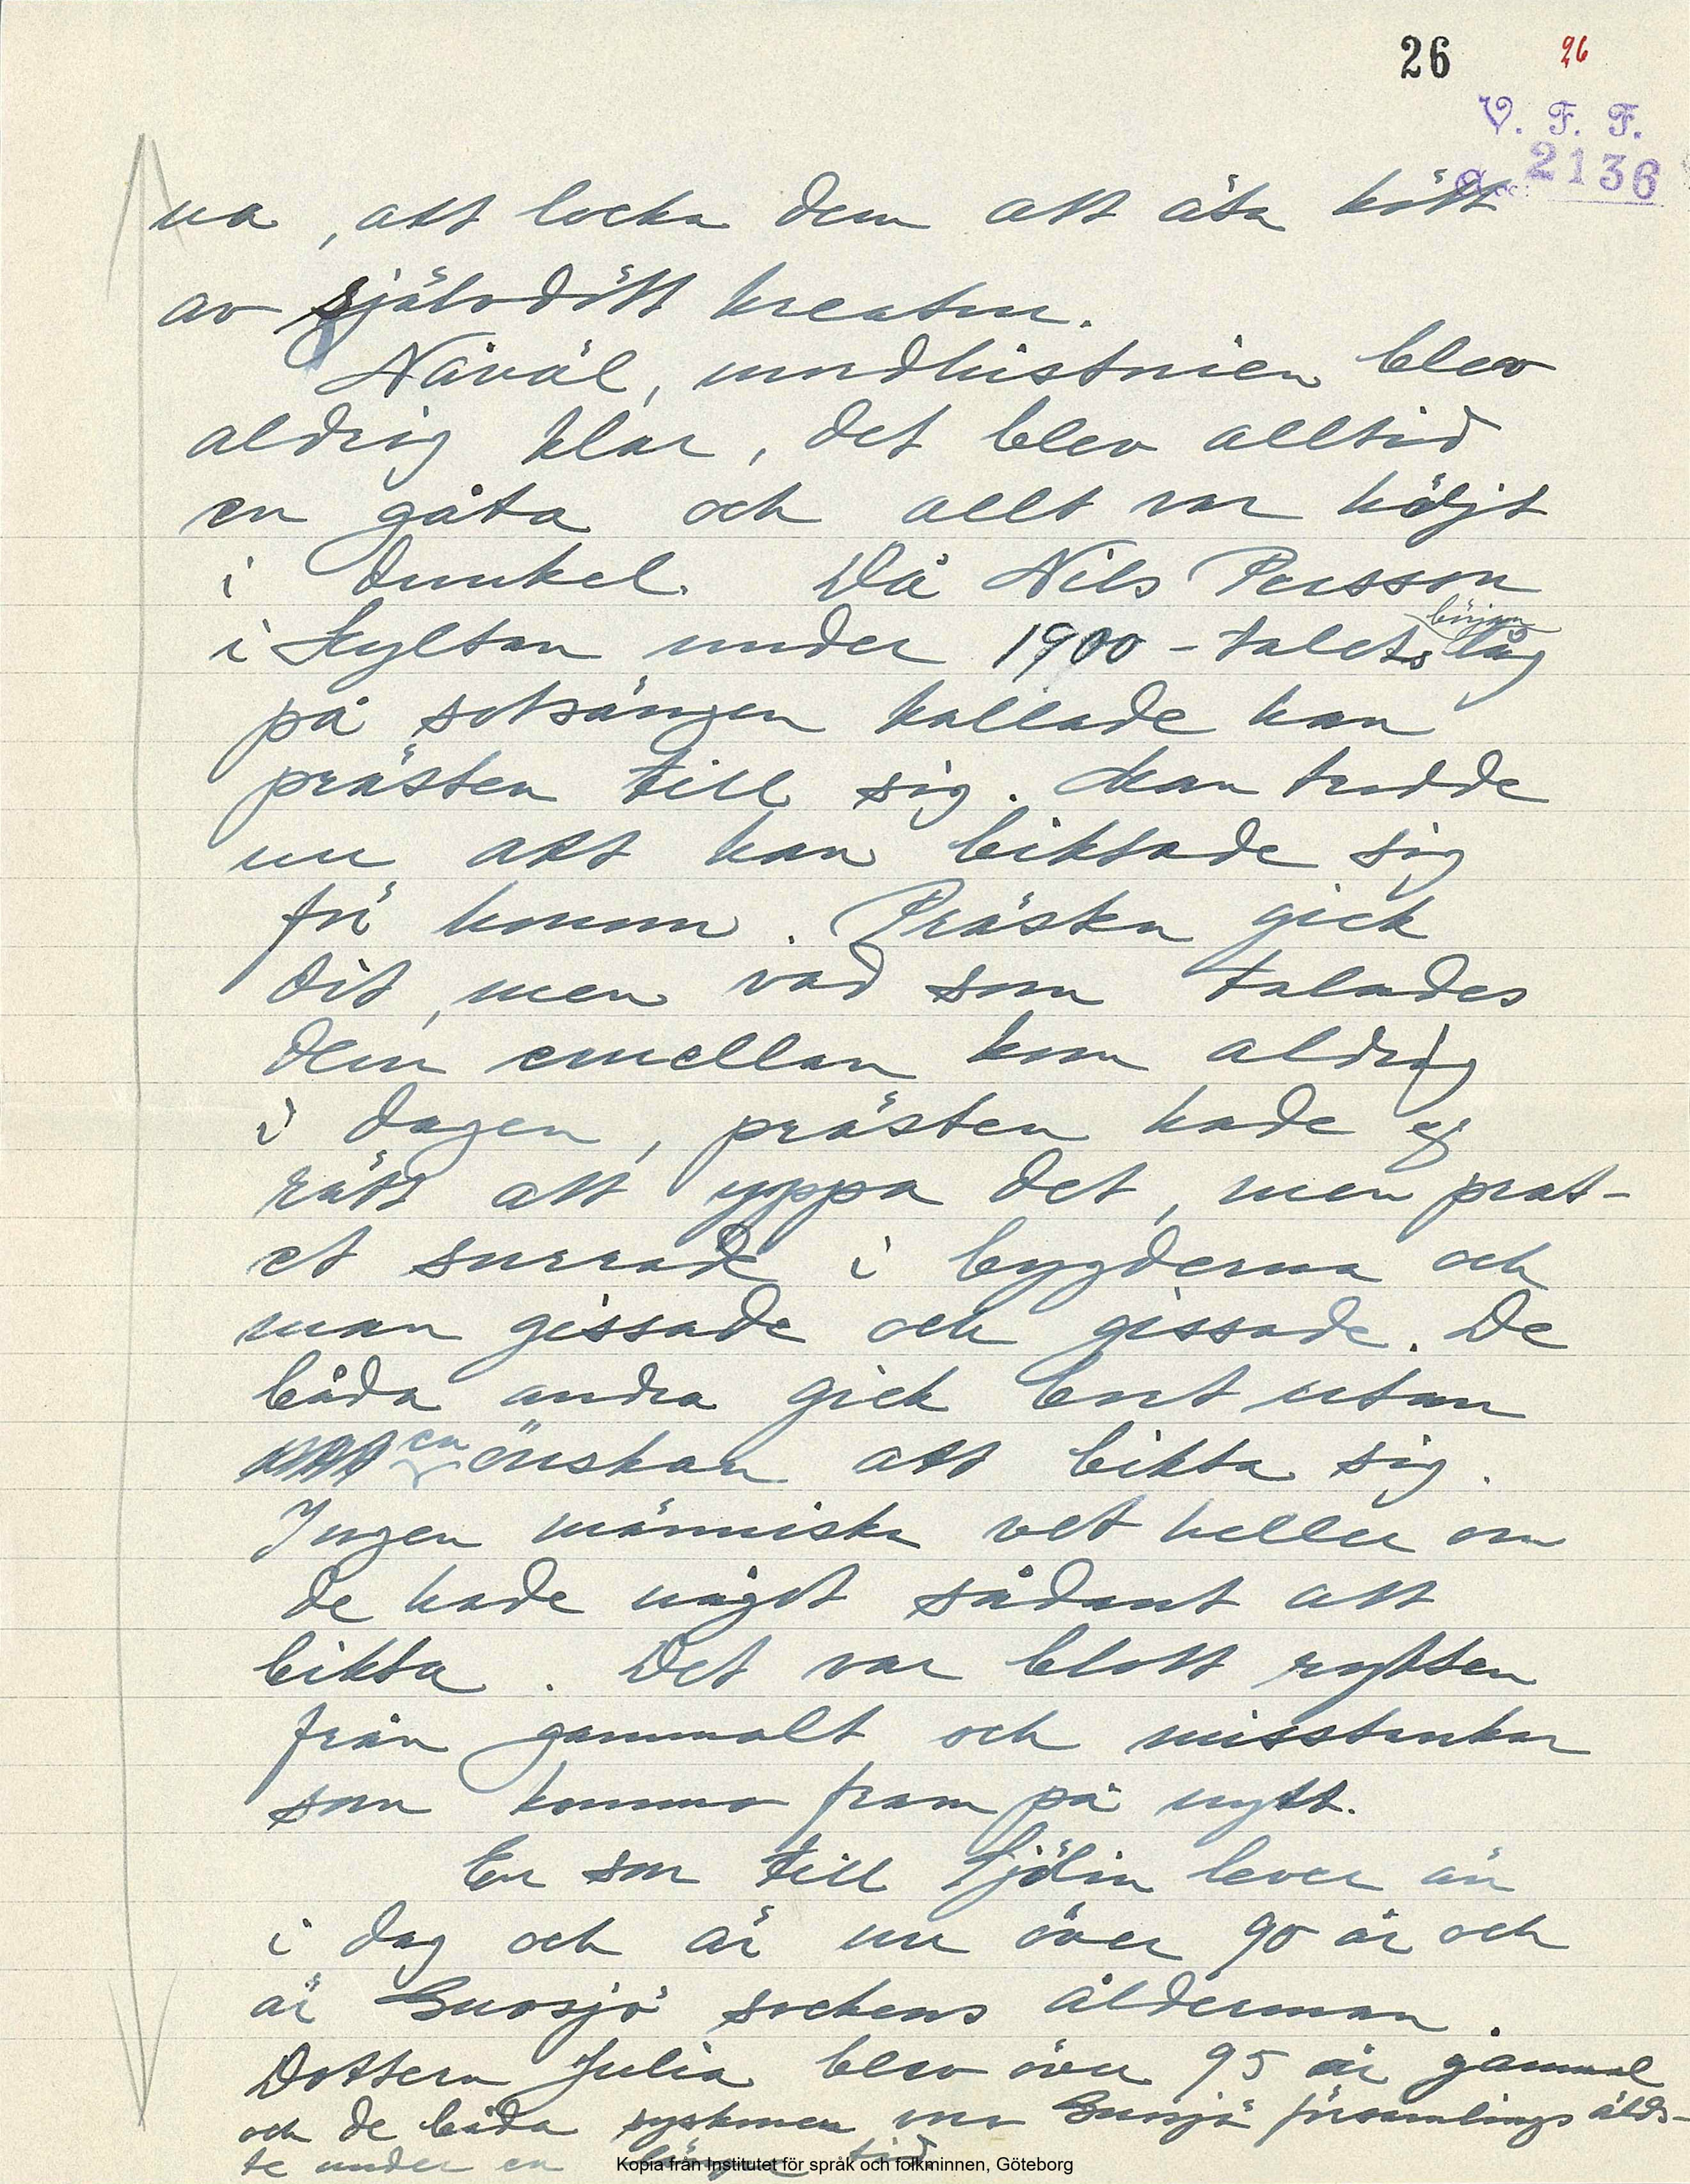 26 26
V. F. F.
Acc: 2136
na, att locka dem att äta kött
av självdött kreatur.
Nåväl, mordhistorien blev
aldrig klar, det blev alltid
en gåta och allt var höljt
i dunkel. Då Nils Persson
i Hyltan under 1900-talets början låg
på sotsängen kallade han
prästen till sig. Man trodde
nu att han biktade sig
för honom. Prästen gick
dit, men vad som talades
dem emellan kom aldrig
i dagen, prästen hade ej
rätt att yppa det, men prat-
et surrade i bygderna och
man gissade och gissade. De
båda andra gick bort utan
en önskan att bikta sig.
Ingen människa vet heller om
de hade något sådant att
bikta. Det var blott rykten
från gammalt och misstankar
som kommo fram på nytt.
En son till Fjölin lever än
i dag och är nu över 90 år och
är Gnosjö sockens ålderman.
Dottern Julia blev över 95 år gammal
och de båda syskonen var Gnosjö församlings älds-
te under en längre tid.
Kopia från Institutet för språk och folkminnen, Göteborg